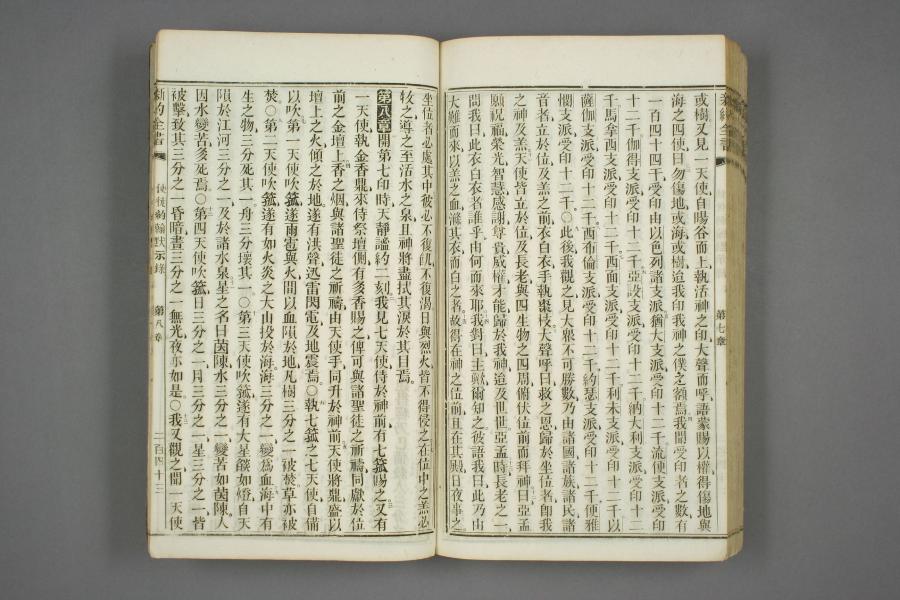 或樹又見一天使自暘谷而上執活神之印大聲而呼語蒙賜以權得傷地與
海之四使曰勿傷地或海或樹迨我印我神之僕之額焉我聞受印者之數有
一百四十四千受印由以色列諸支派猶大支派受印十二千流便支派受印
十二千伽得支派受印十二千亞設支派受印十二千納大利支派受印十二
千馬拿西支派受印十二千西面支派受印十二千利未支派受印十二千以
薩伽支派受印十二千西布倫支派受印十二千約瑟支派受印十二千便雅
憫支派受印十二千〇此後我觀之見大眾不可勝數乃由諸國諸族諸民諸
音者立於位及羔之前衣白衣手執棗枝大聲呼曰救之恩歸於坐位者卽我
之神及羔天使皆立於位及長老與四生物之四周俯伏位前而拜神曰亞孟
願祝福榮光智慧感謝尊貴威權才能歸於我神迨及世世亞孟時長老之一
問我曰此衣白衣者誰乎由何而來耶我對曰主歟爾知之彼語我曰此乃由
大難而來以羔之血滌其衣而白之者故得在神之位前且在其殿日夜事之
新約全書
第七章
坐位者必處其中彼必不復飢不復渴日與烈火皆不得侵之在位中之羔必
牧之導之至活水之泉且神將盡拭其淚於其目焉
第八章開第七印時天靜謐約二刻我見七天使侍於神前有七箛賜之又有
一天使執金香鼎來侍祭壇側有多香賜之俾可與諸聖徒之祈禱同獻於位
前之金壇上香之烟與諸聖徒之祈禱由天使手同升於神前天使將鼎盛以
壇上之火傾之於地遂有洪聲迅雷閃電及地震焉〇執七箛之七天使自備
以吹第一天使吹箛遂雨雹與火間以血隕於地凡樹三分之一被焚草亦被
焚〇第二天使吹箛遂有如火炎之大山投於海海三分之一變為血海中有
生之物三分死其一舟三分壞其一〇第三天使吹箛遂有大星燬如燈自天
隕於江河三分之一及於諸水泉星之名曰茵陳水三分之一變若如茵陳人
因水變苦多死焉〇第四天使吹箛日三分之一月三分之一星三分之一皆
被擊致其三分之一昏暗晝三分之一無光夜亦如是〇我又觀之聞一天使
新約全書
第八章
二百四十三